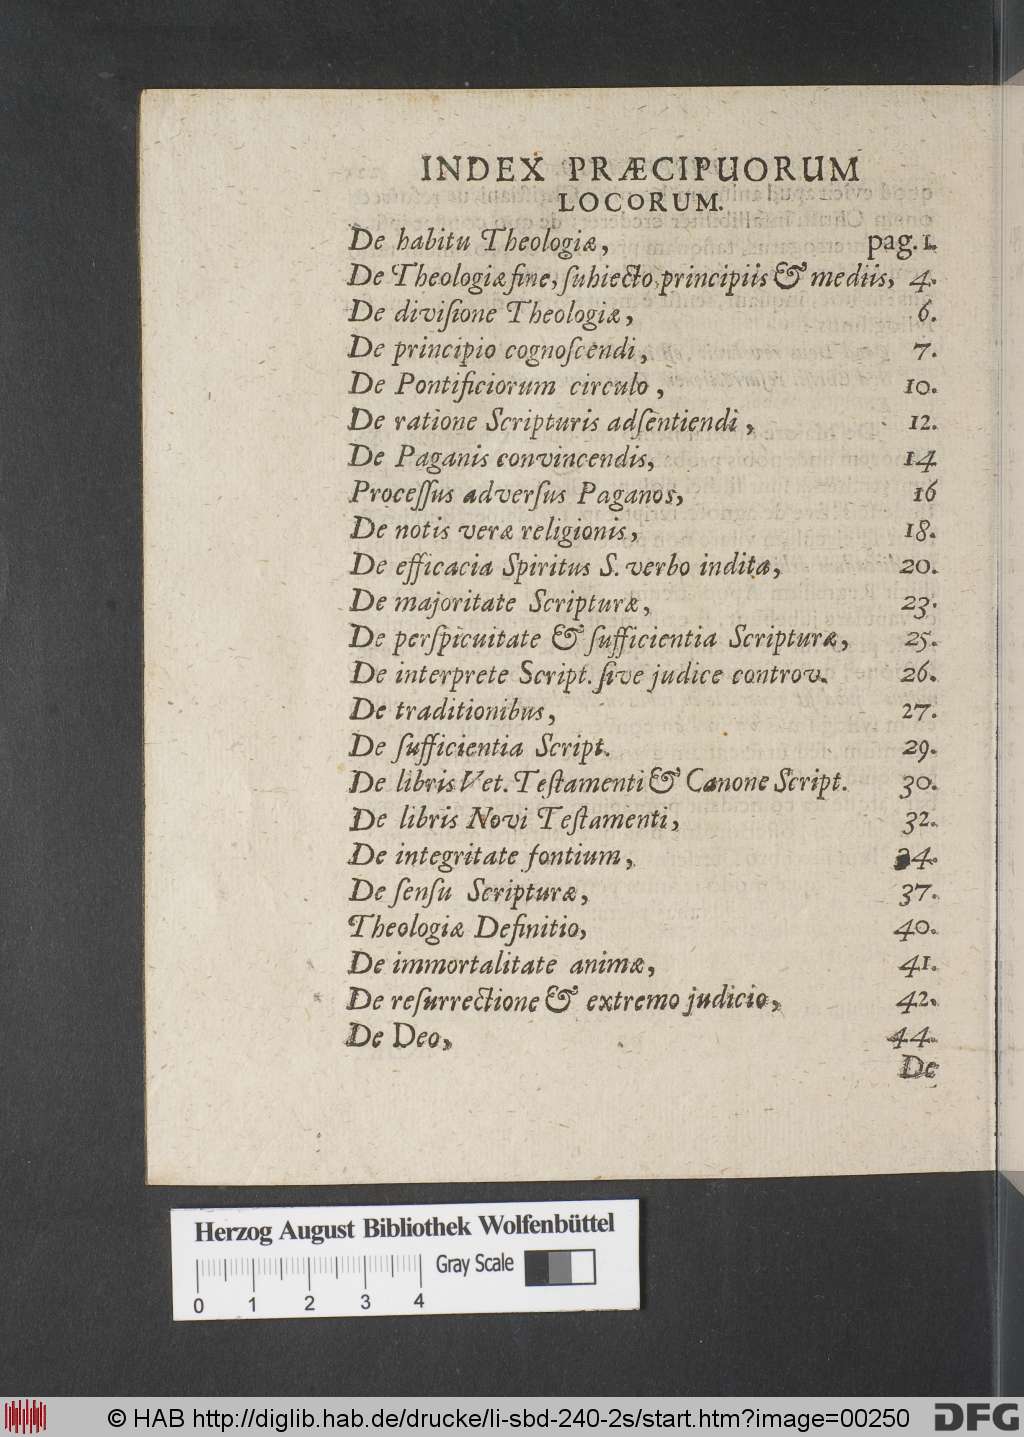 INDEX PRÆCIPUORUM
LOCORUM.
De habitu Theologiæ, pag. 1.
De Theologiæ fine, ſubiecto, principiis & mediis, 4.
De diviſione Theologiæ, 6.
De principio cognoſcendi, 7.
De Pontificiorum circulo, 10.
De ratione Scripturis adſentiendi, 12.
De Paganis convincendis, 14
Proceſſus adverſus Paganos, 16
De notis veræ religionis, 18.
De efficacia Spiritus S. verbo indita, 20.
De majoritate Scripturæ, 23.
De perſpicuitate & ſufficientia Scripturæ, 25.
De interprete Script. ſive judice controv. 26.
De traditionibus, 27.
De ſufficientia Script. 29.
De libris Vet. Teſtamenti & Canone Script. 30.
De libris Novi Teſtamenti, 32.
De integritate fontium, 34.
De ſenſu Scripturæ, 37.
Theologiæ Definitio, 40.
De immortalitate animæ, 41.
De reſurrectione & extremo judicio, 42.
De Deo, 44.
De
Herzog August Bibliothek Wolfenbüttel
Gray Scale
0 1 2 3 4
© HAB http://diglib.hab.de/drucke/li-sbd-240-2s/start.htm?image=00250 DFG